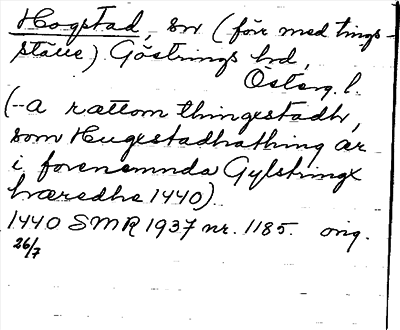 Hogstad, sn (förr med tings-
ställe) Göstrings hd,
Österg. l.
(-a rættom thingestadh,
som Hugestadhathing ær
i forenemnda Gylstringx
hæredhe 1440).
1440 SMR 1937 nr. 1185. orig.
26/7